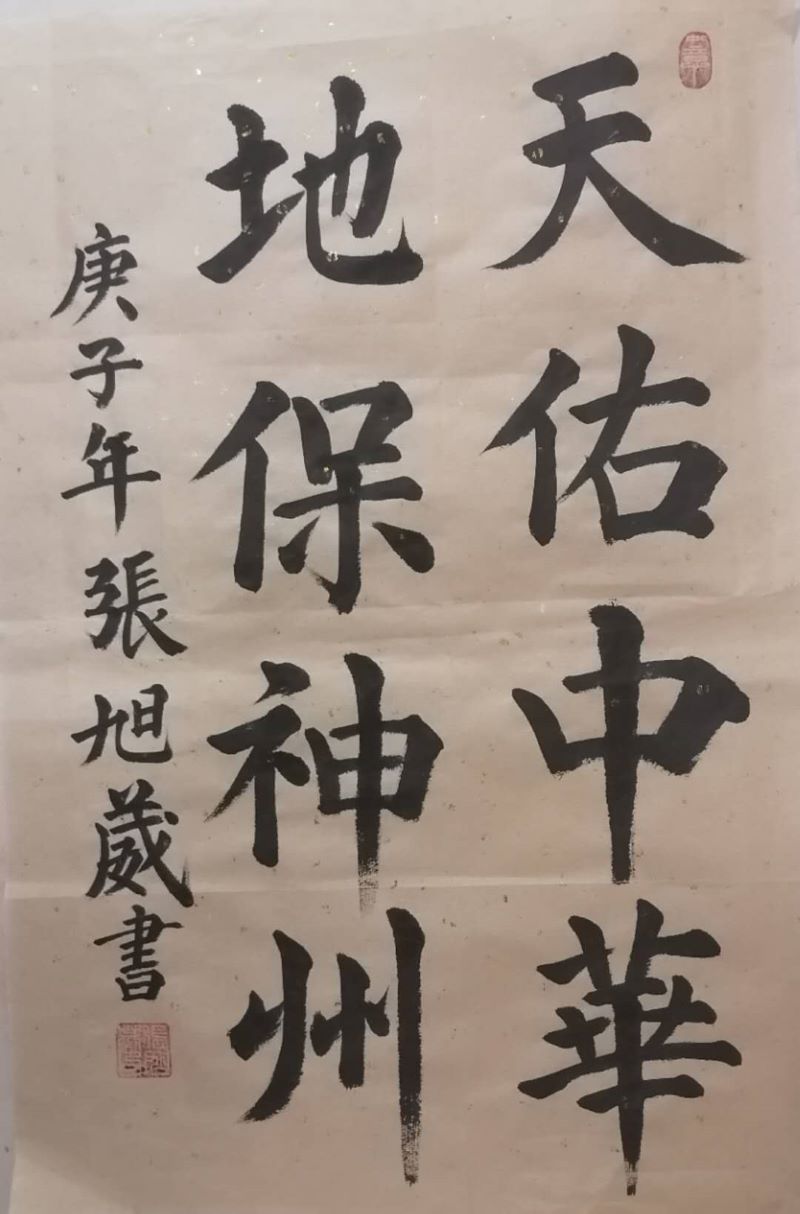 天佑中華
地保神州
庚子年張旭葳書